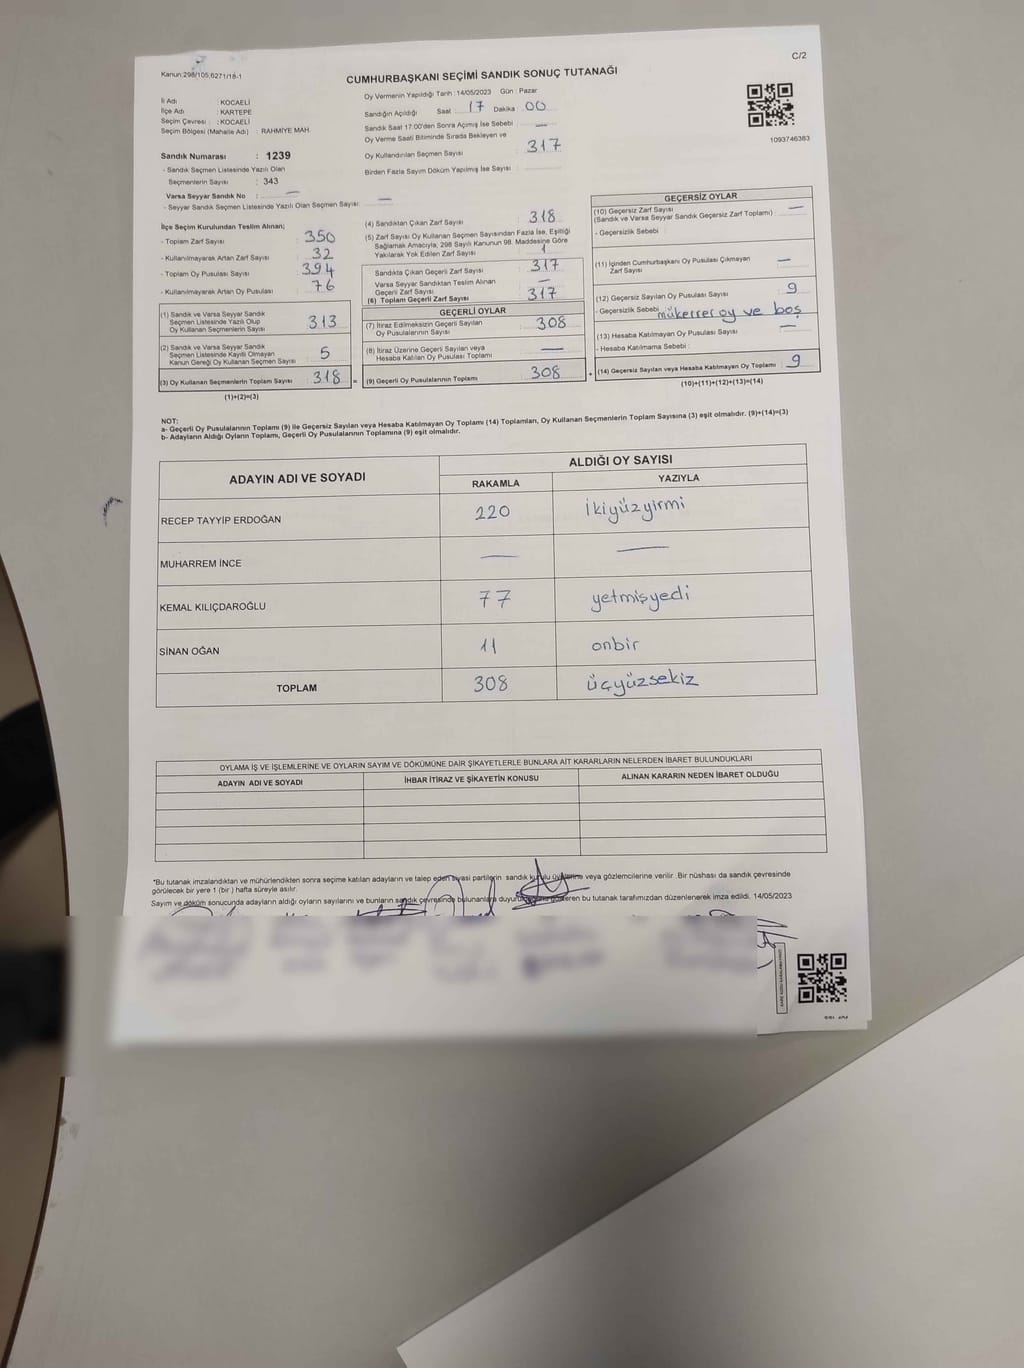 Kanun:298/105,6271/18-1
C/2
CUMHURBAŞKANI SEÇİMİ SANDIK SONUÇ TUTANAĞI
İl Adı : KOCAELİ
İlçe Adı : KARTEPE
Seçim Çevresi : KOCAELİ
Seçim Bölgesi (Mahalle Adı) : RAHMİYE MAH.
Sandık Numarası : 1239
- Sandık Seçmen Listesinde Yazılı Olan
Seçmenlerin Sayısı : 343
Varsa Seyyar Sandık No : —
- Seyyar Sandık Seçmen Listesinde Yazılı Olan Seçmen Sayısı: —
Oy Vermenin Yapıldığı Tarih : 14/05/2023 Gün : Pazar
Sandığın Açıldığı Saat : 17 Dakika : 00
Sandık Saat 17:00'den Sonra Açımış İse Sebebi : —
Oy Verme Saati Bitiminde Sırada Bekleyen ve
Oy Kullandırılan Seçmen Sayısı : 317
Birden Fazla Sayım Döküm Yapılmış İse Sayısı :
1093746383
İlçe Seçim Kurulundan Teslim Alınan;
- Toplam Zarf Sayısı : 350
- Kullanılmayarak Artan Zarf Sayısı : 32
- Toplam Oy Pusulası Sayısı : 394
- Kullanılmayarak Artan Oy Pusulası : 76
(1) Sandık ve Varsa Seyyar Sandık
Seçmen Listesinde Yazılı Olup
Oy Kullanan Seçmenlerin Sayısı : 313
(2) Sandık ve Varsa Seyyar Sandık
Seçmen Listesinde Kayıtlı Olmayan
Kanun Gereği Oy Kullanan Seçmen Sayısı : 5
(3) Oy Kullanan Seçmenlerin Toplam Sayısı : 318 =
(1)+(2)=(3)
(4) Sandıktan Çıkan Zarf Sayısı : 318
(5) Zarf Sayısı Oy Kullanan Seçmen Sayısından Fazla İse, Eşitliği
Sağlamak Amacıyla, 298 Sayılı Kanunun 98. Maddesine Göre
Yakılarak Yok Edilen Zarf Sayısı : 1
Sandıkta Çıkan Geçerli Zarf Sayısı : 317
Varsa Seyyar Sandıktan Teslim Alınan
Geçerli Zarf Sayısı : —
(6) Toplam Geçerli Zarf Sayısı : 317
GEÇERLİ OYLAR
(7) İtiraz Edilmeksizin Geçerli Sayılan
Oy Pusulalarının Sayısı : 308
(8) İtiraz Üzerine Geçerli Sayılan veya
Hesaba Katılan Oy Pusulası Toplamı : —
(9) Geçerli Oy Pusulalarının Toplamı : 308 +
GEÇERSİZ OYLAR
(10) Geçersiz Zarf Sayısı
(Sandık ve Varsa Seyyar Sandık Geçersiz Zarf Toplamı) : —
- Geçersizlik Sebebi :
(11) İçinden Cumhurbaşkanı Oy Pusulası Çıkmayan
Zarf Sayısı : —
(12) Geçersiz Sayılan Oy Pusulası Sayısı : 9
- Geçersizlik Sebebi : mükerrer oy ve boş
(13) Hesaba Katılmayan Oy Pusulası Sayısı : —
- Hesaba Katılmama Sebebi :
(14) Geçersiz Sayılan veya Hesaba Katılmayan Oy Toplamı : 9
(10)+(11)+(12)+(13)=(14)
NOT:
a- Geçerli Oy Pusulalarının Toplamı (9) ile Geçersiz Sayılan veya Hesaba Katılmayan Oy Toplamı (14) Toplamları, Oy Kullanan Seçmenlerin Toplam Sayısına (3) eşit olmalıdır. (9)+(14)=(3)
b- Adayların Aldığı Oyların Toplamı, Geçerli Oy Pusulalarının Toplamına (9) eşit olmalıdır.
ADAYIN ADI VE SOYADI
ALDIĞI OY SAYISI
RAKAMLA YAZIYLA
RECEP TAYYİP ERDOĞAN 220 ikiyüzyirmi
MUHARREM İNCE — —
KEMAL KILIÇDAROĞLU 77 yetmişyedi
SİNAN OĞAN 11 onbir
TOPLAM 308 üçyüzsekiz
OYLAMA İŞ VE İŞLEMLERİNE VE OYLARIN SAYIM VE DÖKÜMÜNE DAİR ŞİKAYETLERLE BUNLARA AİT KARARLARIN NELERDEN İBARET BULUNDUKLARI
ADAYIN ADI VE SOYADI İHBAR İTİRAZ VE ŞİKAYETİN KONUSU ALINAN KARARIN NEDEN İBARET OLDUĞU
*Bu tutanak imzalandıktan ve mühürlendikten sonra seçime katılan adayların ve talep eden siyasi partilerin sandık kurulu üyelerine veya gözlemcilerine verilir. Bir nüshası da sandık çevresinde
görülecek bir yere 1 (bir) hafta süreyle asılır.
Sayım ve döküm sonucunda adayların aldığı oyların sayılarını ve bunların sandık çevresinde bulunanlara gösteren bu tutanak tarafımızdan düzenlenerek imza edildi. 14/05/2023